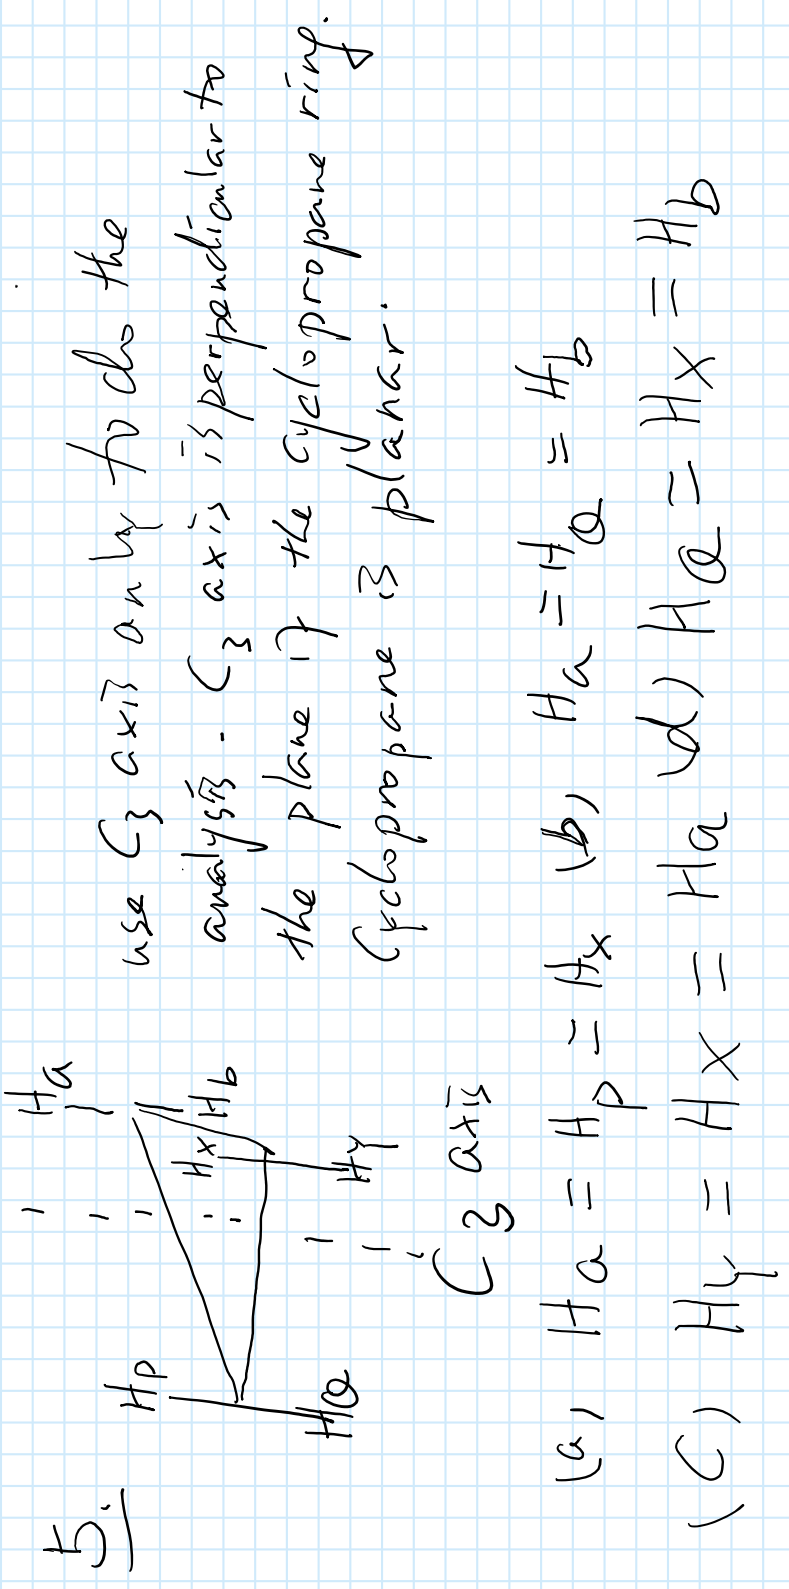 5.
Ha
Hp
Hx
Hb
HQ
HY
C3 axis
use C3 axis only to do the
analysis. C3 axis is perpendicular to
the plane if the cyclopropane ring.
Cyclopropane is planar.
(a) Ha = Hp = Hx (b) Ha = HQ = Hb
(C) HY = Hx = Ha (d) HQ = Hx = Hb